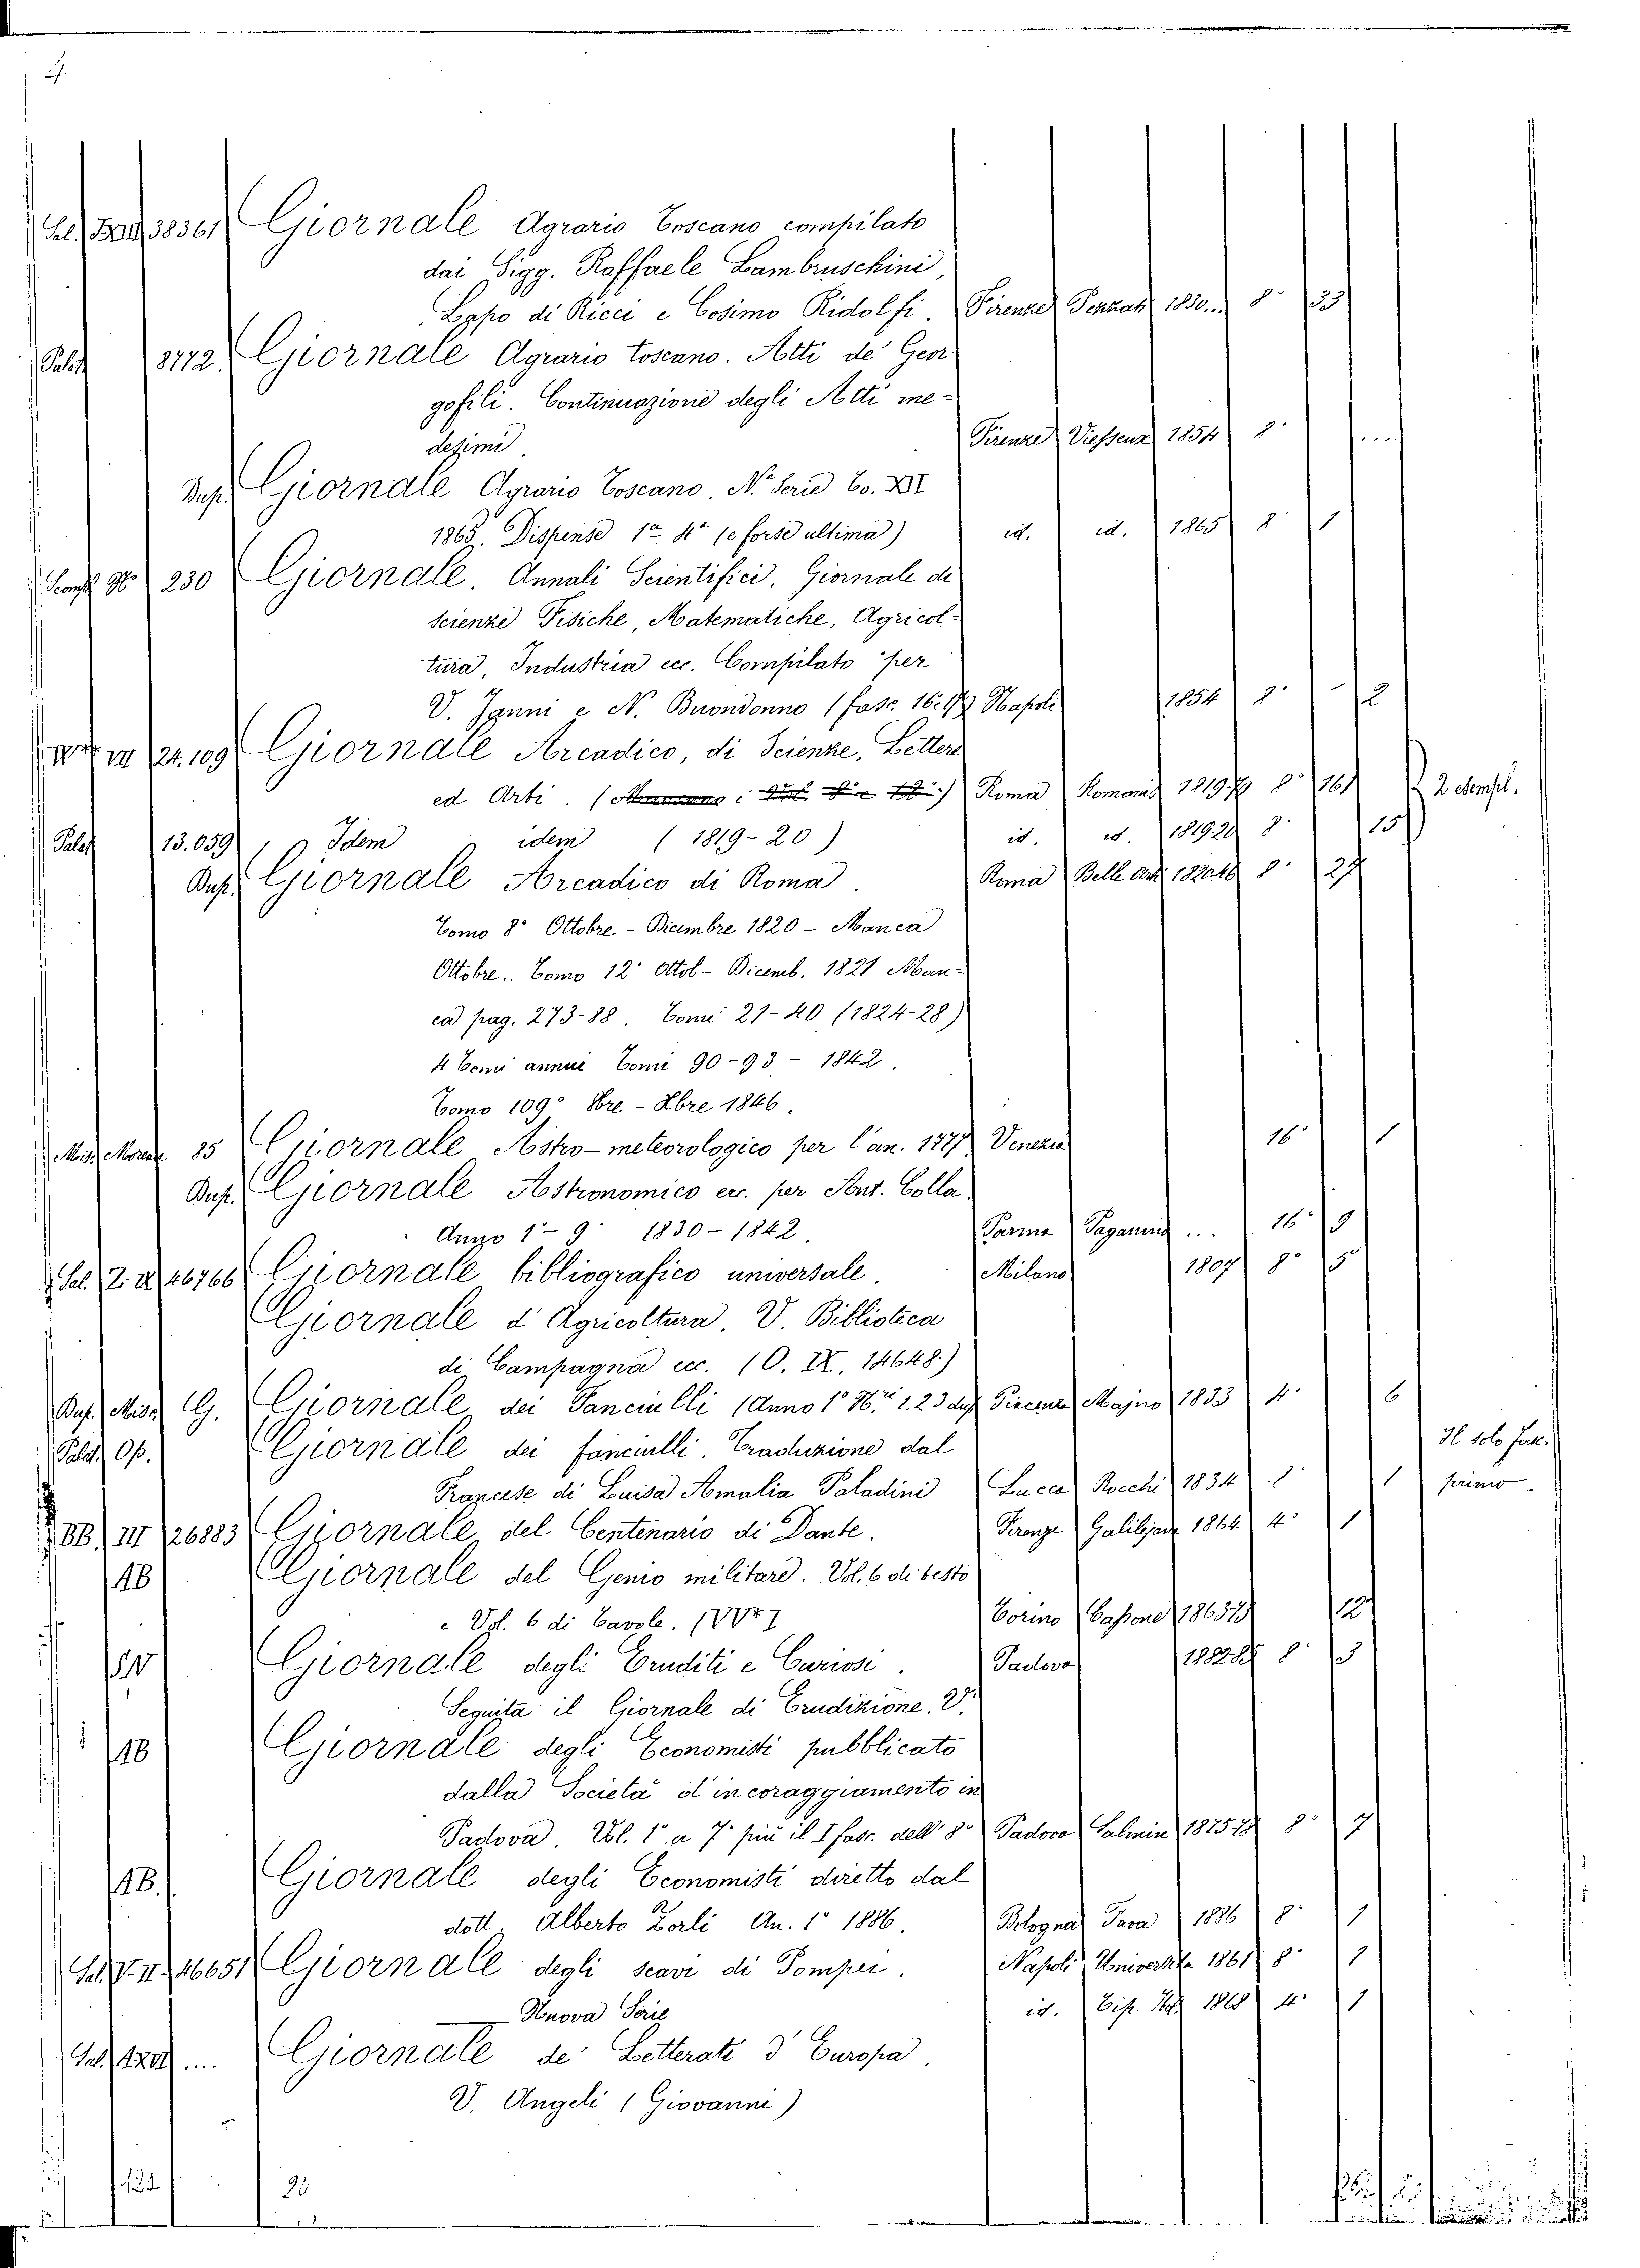 38361 Giornale Agrario Toscano compilato
dai Sigg. Raffaele Lambruschini,
Lapo di Ricci e Cosimo Ridolfi. Firenze 1830... 8° 23
Palat. 8172. Giornale Agrario toscano. Atti de' Geor-
gofili. Continuazione degli Atti me-
desimi. Firenze Viesseux 1854 8° ....
Dup. Giornale Agrario Toscano. N. Serie To. XII
1865. Dispense 1a 4a (e forse ultima) id. id. 1865 8° 1
230 Giornale. Annali Scientifici. Giornale di
scienze Fisiche, Matematiche, Agricol-
tura, Industria ecc. Compilato per
V. Janni e N. Buondonno (fasc. 16.17) Napoli 1854 8° 2
24.109 Giornale Arcadico, di Scienze, Lettere
ed Arti. Roma 8° 2 esempl.
Palat. 13.059 Idem idem (1819-20) id. id. 1819.20 8° 15
Dup. Giornale Arcadico di Roma. Roma Belle Arti 8° 27
Tomo 8° Ottobre - Dicembre 1820 - Manca
Ottobre.. Tomo 12° Ottob- Dicemb. 1821 Man-
ca pag. 273-88. Tomi 21-40 (1824-28)
4 Tomi annui Tomi 90-93 - 1842.
Tomo 109° 8bre - Xbre 1846.
Misc. 25 Giornale Astro-meteorologico per l'an. 1777 Venezia 16° 1
Dup. Giornale Astronomico ecc. per Ant. Colla.
Anno 1°- 9° 1830-1842. Parma Paganini ... 16° 9
46766 Giornale bibliografico universale. Milano 1807 8° 5
Giornale d'Agricoltura. V. Biblioteca
di Campagna ecc. (O. IX. 14648.)
Dup. Misc. G. Giornale dei Fanciulli (Anno 1° Ni 1.23 Piacenza Majno 1833 4° 6
Palat. Op. Giornale dei fanciulli. Traduzione dal Il solo fasc.
Francese di Luisa Amalia Paladini Lucca Rocchi 1834 8° 1 primo.
BB. III 26883 Giornale del Centenario di Dante. Firenze Galilejana 1864 4° 1
AB Giornale del Genio militare. Vol. 6 di testo
e Vol. 6 di Tavole. Torino Cassone 12
Giornale degli Eruditi e Curiosi. Padova 8° 3
Seguita il Giornale di Erudizione. V.
AB Giornale degli Economisti pubblicato
dalla Società d'incoraggiamento in
Padova. Vol. 1° a 7° più il I fasc. dell' 8° Padova Salmin 1875.78 8° 7
AB. Giornale degli Economisti diretto dal
dott. Alberto Zorli An. 1° 1886. Bologna Fava 1886 8° 1
46651 Giornale degli scavi di Pompei. Napoli Università 1861 8° 1
Nuova Serie id. Tip. 1868 4° 1
Giornale de' Letterati d'Europa.
V. Angeli (Giovanni)